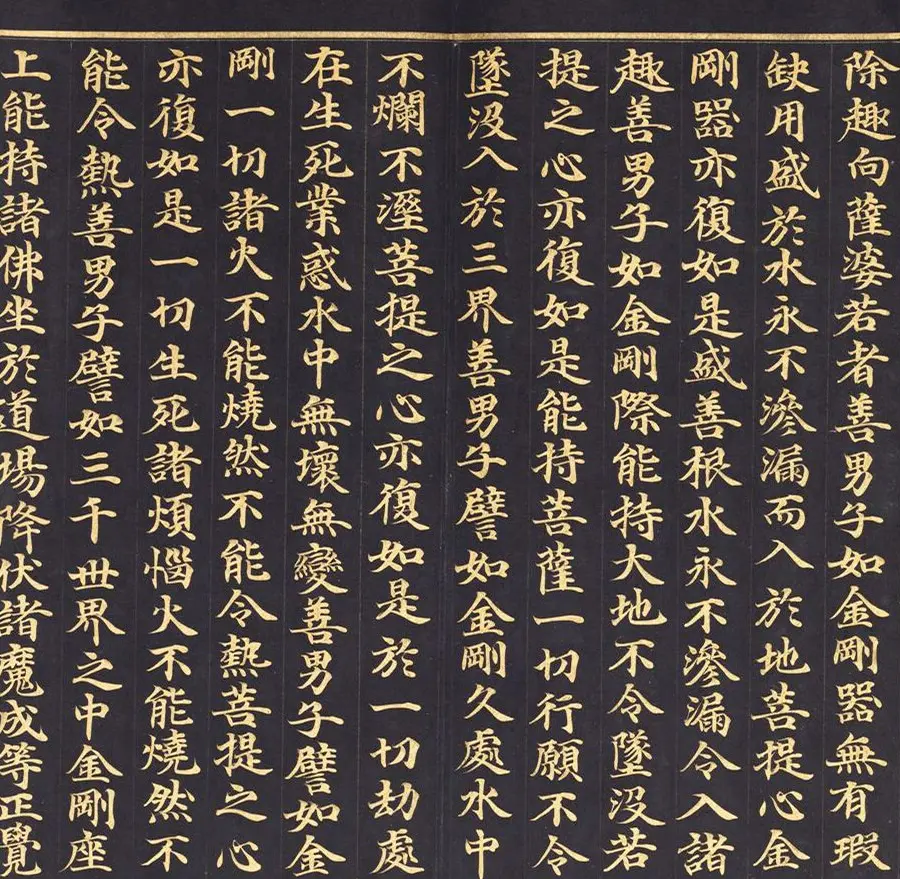 除趣向薩婆若者善男子如金剛器無有瑕
缺用盛於水永不滲漏而入於地菩提心金
剛器亦復如是盛善根水永不滲漏令入諸
趣善男子如金剛際能持大地不令墜沒若
提之心亦復如是能持菩薩一切行願不令
墜沒入於三界善男子譬如金剛久處水中
不爛不溼菩提之心亦復如是於一切劫處
在生死業惑水中無壞無變善男子譬如金
剛一切諸火不能燒然不能令熱菩提之心
亦復如是一切生死諸煩惱火不能燒然不
能令熱善男子譬如三千世界之中金剛座
上能持諸佛坐於道場降伏諸魔成等正覺